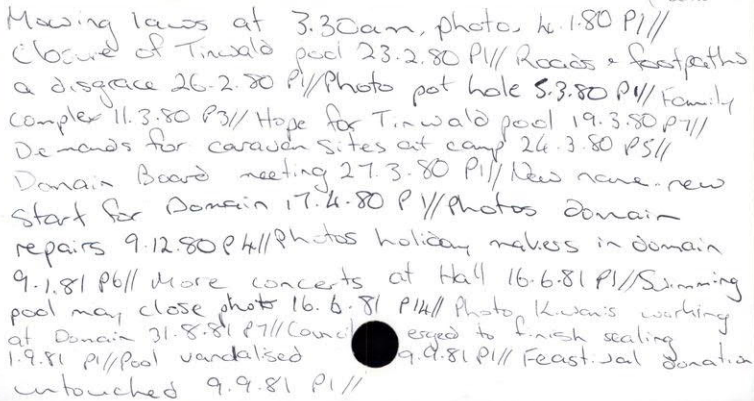 Mowing lawns at 3.30am, photo, 4.1.80 P1//
Closure of Tinwald pool 23.2.80 P1// Roads & footpaths
a disgrace 26.2.80 P1// Photo pot hole 5.3.80 P1// Family
complex 11.3.80 P3// Hope for Tinwald pool 19.3.80 P7//
Demands for caravan sites at camp 24.3.80 P5//
Domain Board meeting 27.3.80 P1// New name-new
start for Domain 17.4.80 P1// Photos domain
repairs 9.12.80 P4// Photos holiday makers in domain
9.1.81 P6// More concerts at Hall 16.6.81 P1// Swimming
pool may close photo 16.6.81 P14// Photo, Kiwanis working
at Domain 31.8.81 P7// Council esged to finish sealing
1.9.81 P1// Pool vandalised 9.9.81 P1// Feastival donation
untouched 9.9.81 P1//